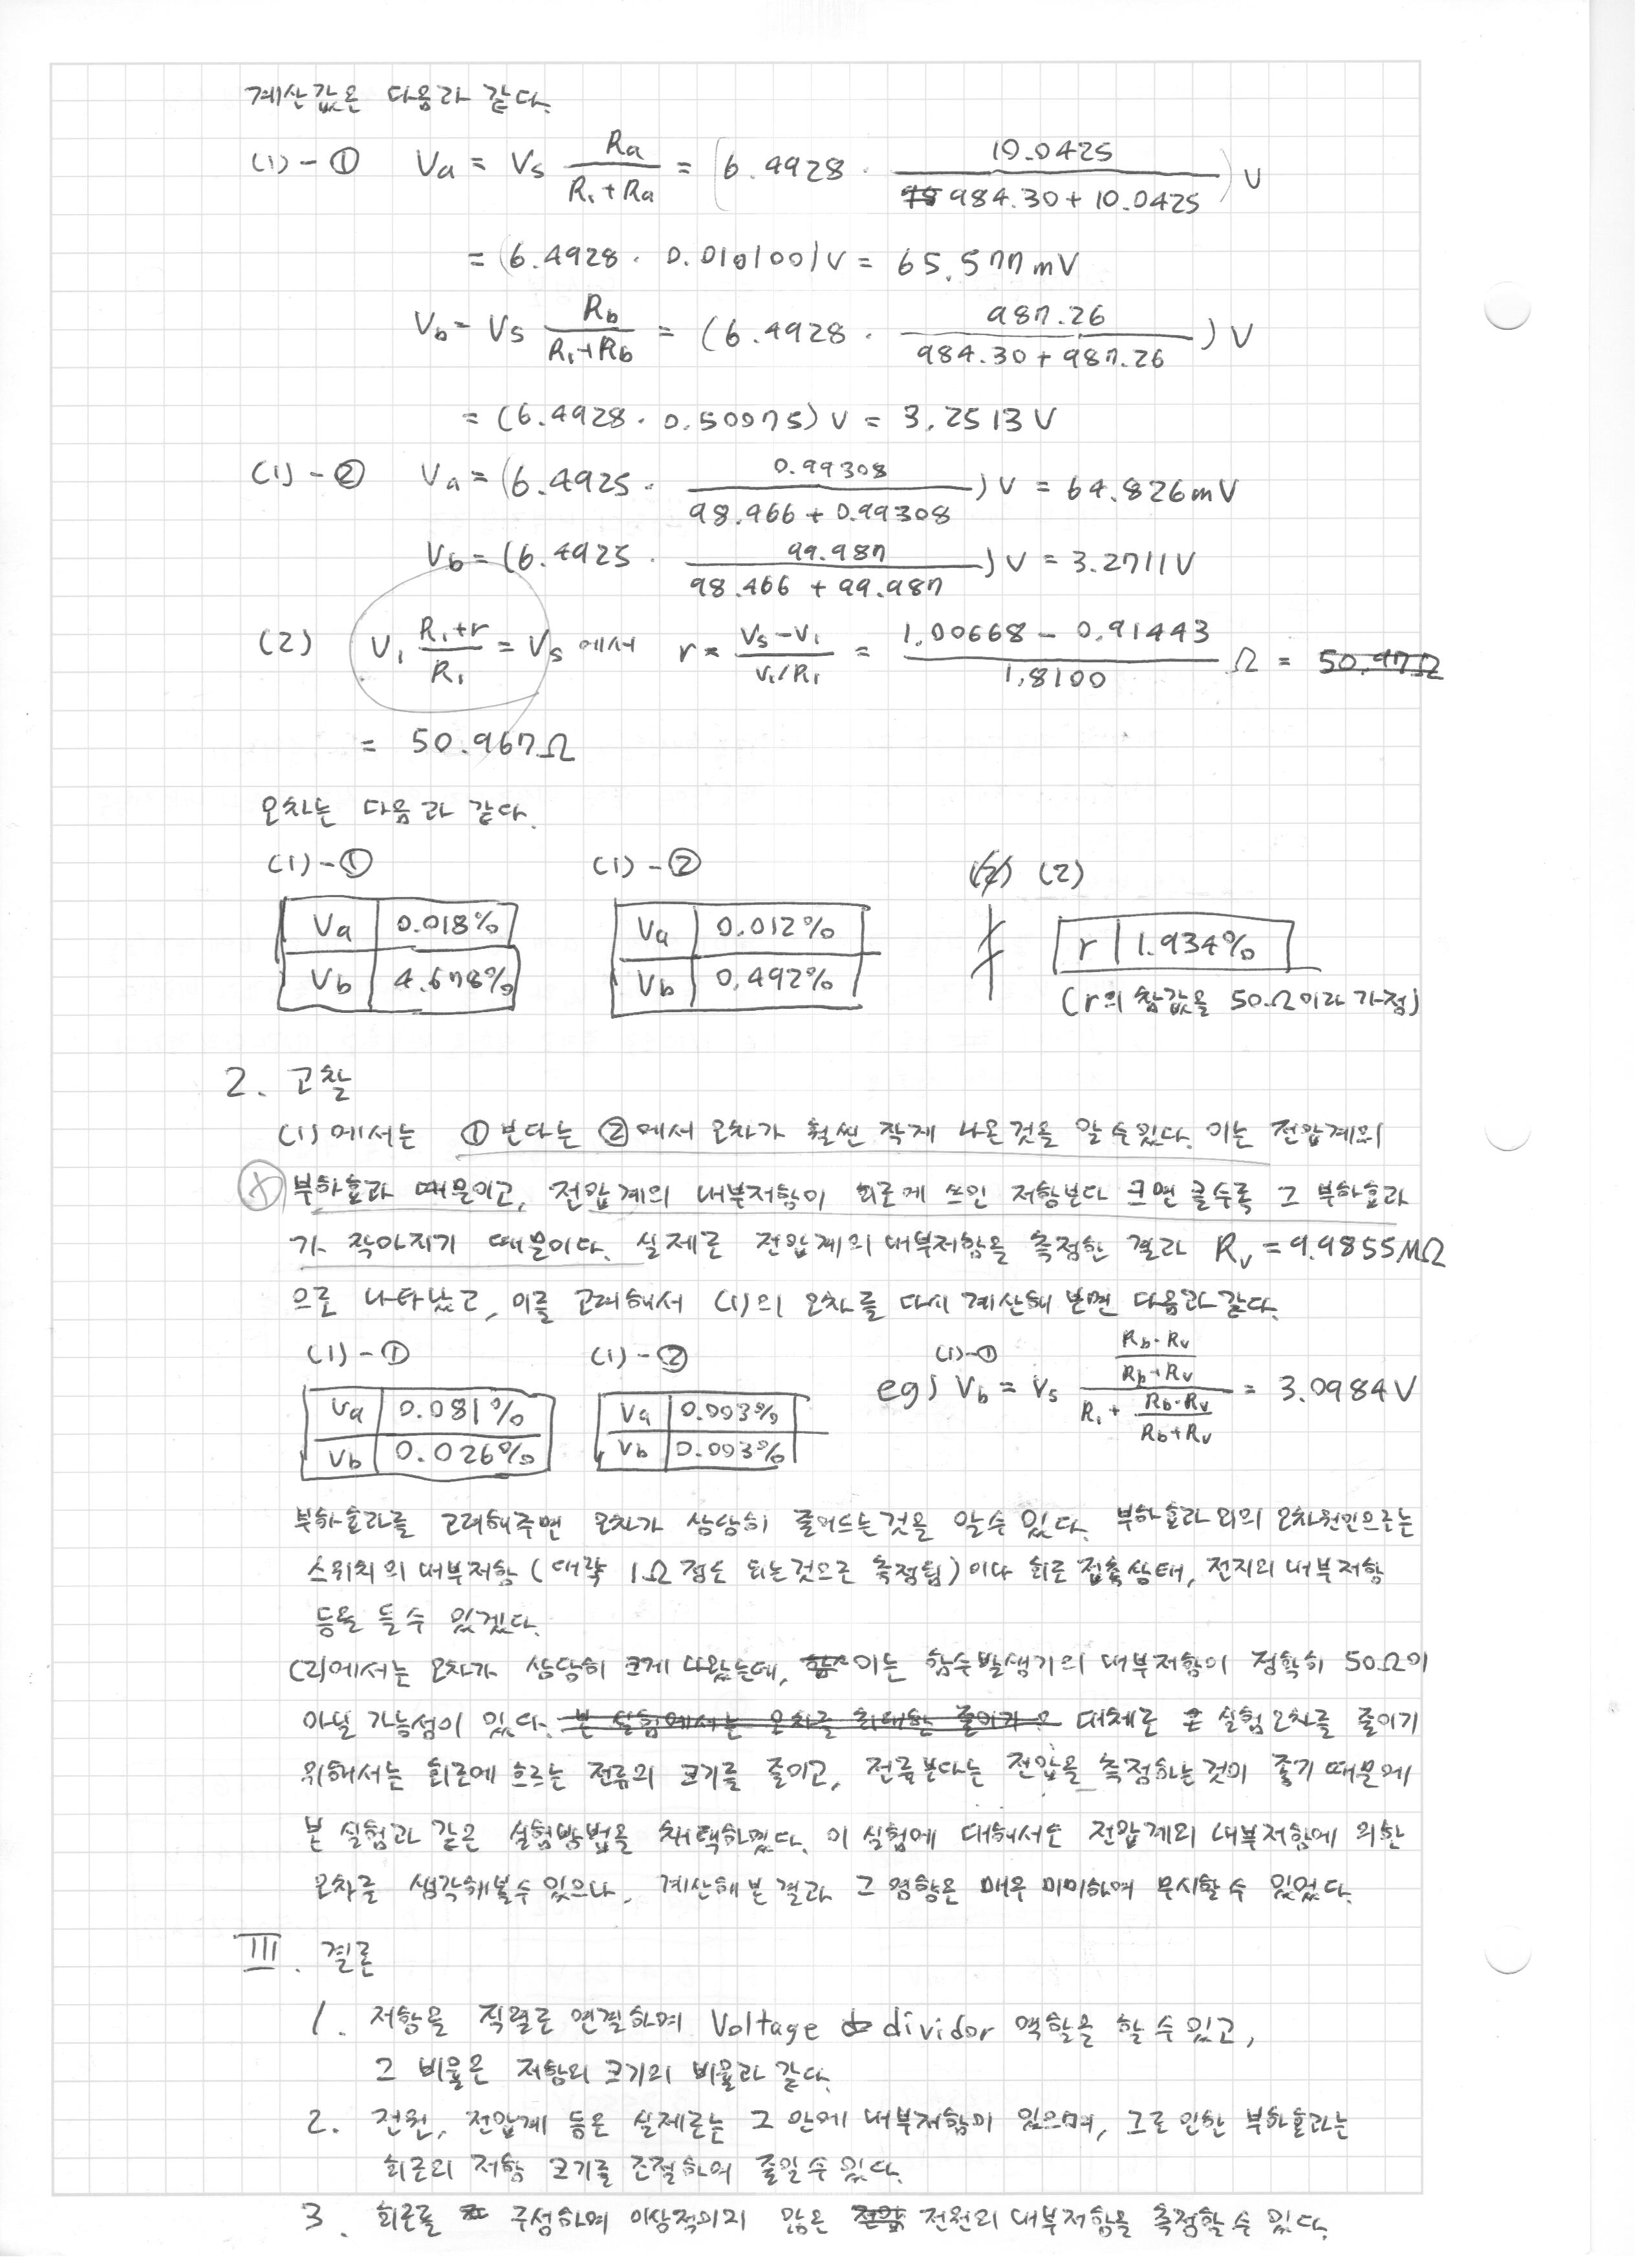 계산값은 다음과 같다.
(1)-① Va = Vs Ra/(R₁+Ra) = (6.4928 · 10.0425/(984.30+10.0425)) V
= (6.4928 · 0.010100)V = 65.577mV
Vb = Vs Rb/(R₁+Rb) = (6.4928 · 987.26/(984.30+987.26)) V
= (6.4928 · 0.50075) V = 3.2513V
(1)-② Va = (6.4925 · 0.99308/(98.466+0.99308)) V = 64.826mV
Vb = (6.4925 · 99.987/(98.466+99.987)) V = 3.2711V
(2) V₁ (R₁+r)/R₁ = Vs 에서 r = (Vs-V₁)/(V₁/R₁) = (1.00668-0.91443)/1.8100 Ω = 50.97Ω
= 50.967Ω
오차는 다음과 같다.
(1)-① (1)-② (2)
Va 0.018% Va 0.012% r 1.934%
Vb 4.678% Vb 0.492%
(r의 참값을 50Ω이라 가정)
2. 고찰
(1)에서는 ①보다는 ②에서 오차가 훨씬 작게 나온것을 알 수 있다. 이는 전압계의
부하효과 때문이고, 전압계의 내부저항이 회로에 쓰인 저항보다 크면 클수록 그 부하효과
가 작아지기 때문이다. 실제로 전압계의 내부저항을 측정한 결과 Rv = 9.9855MΩ
으로 나타났고, 이를 고려해서 (1)의 오차를 다시 계산해 보면 다음과 같다.
(1)-① (1)-② (1)-①
eg) Vb = Vs (Rb·Rv/(Rb+Rv))/(R₁+Rb·Rv/(Rb+Rv)) = 3.0984V
Va 0.081% Va 0.003%
Vb 0.026% Vb 0.003%
부하효과를 고려해주면 오차가 상당히 줄어드는것을 알수 있다. 부하효과 외의 오차원인으로는
스위치의 내부저항(대략 1Ω 정도 되는것으로 측정됨)이나 회로 접촉상태, 전지의 내부저항
등을 들 수 있겠다.
(2)에서는 오차가 상당히 크게 나왔는데, 이는 함수발생기의 내부저항이 정확히 50Ω이
아닐 가능성이 있다. 본 실험에서는 오차를 최대한 줄이기 대체로 실험오차를 줄이기
위해서는 회로에 흐르는 전류의 크기를 줄이고, 전류보다는 전압을 측정하는것이 좋기 때문에
본 실험과 같은 실험방법을 채택하였다. 이 실험에 대해서도 전압계의 내부저항에 의한
오차를 생각해볼수 있으나, 계산해 본 결과 그 영향은 매우 미미하여 무시할 수 있었다.
III. 결론
1. 저항을 직렬로 연결하여 Voltage dividor 역할을 할 수 있고,
그 비율은 저항의 크기의 비율과 같다.
2. 전원, 전압계 등은 실제로는 그 안에 내부저항이 있으며, 그로 인한 부하효과는
회로의 저항 크기를 조절하여 줄일수 있다.
3. 회로를 구성하여 이상적이지 않은 전원의 내부저항을 측정할 수 있다.